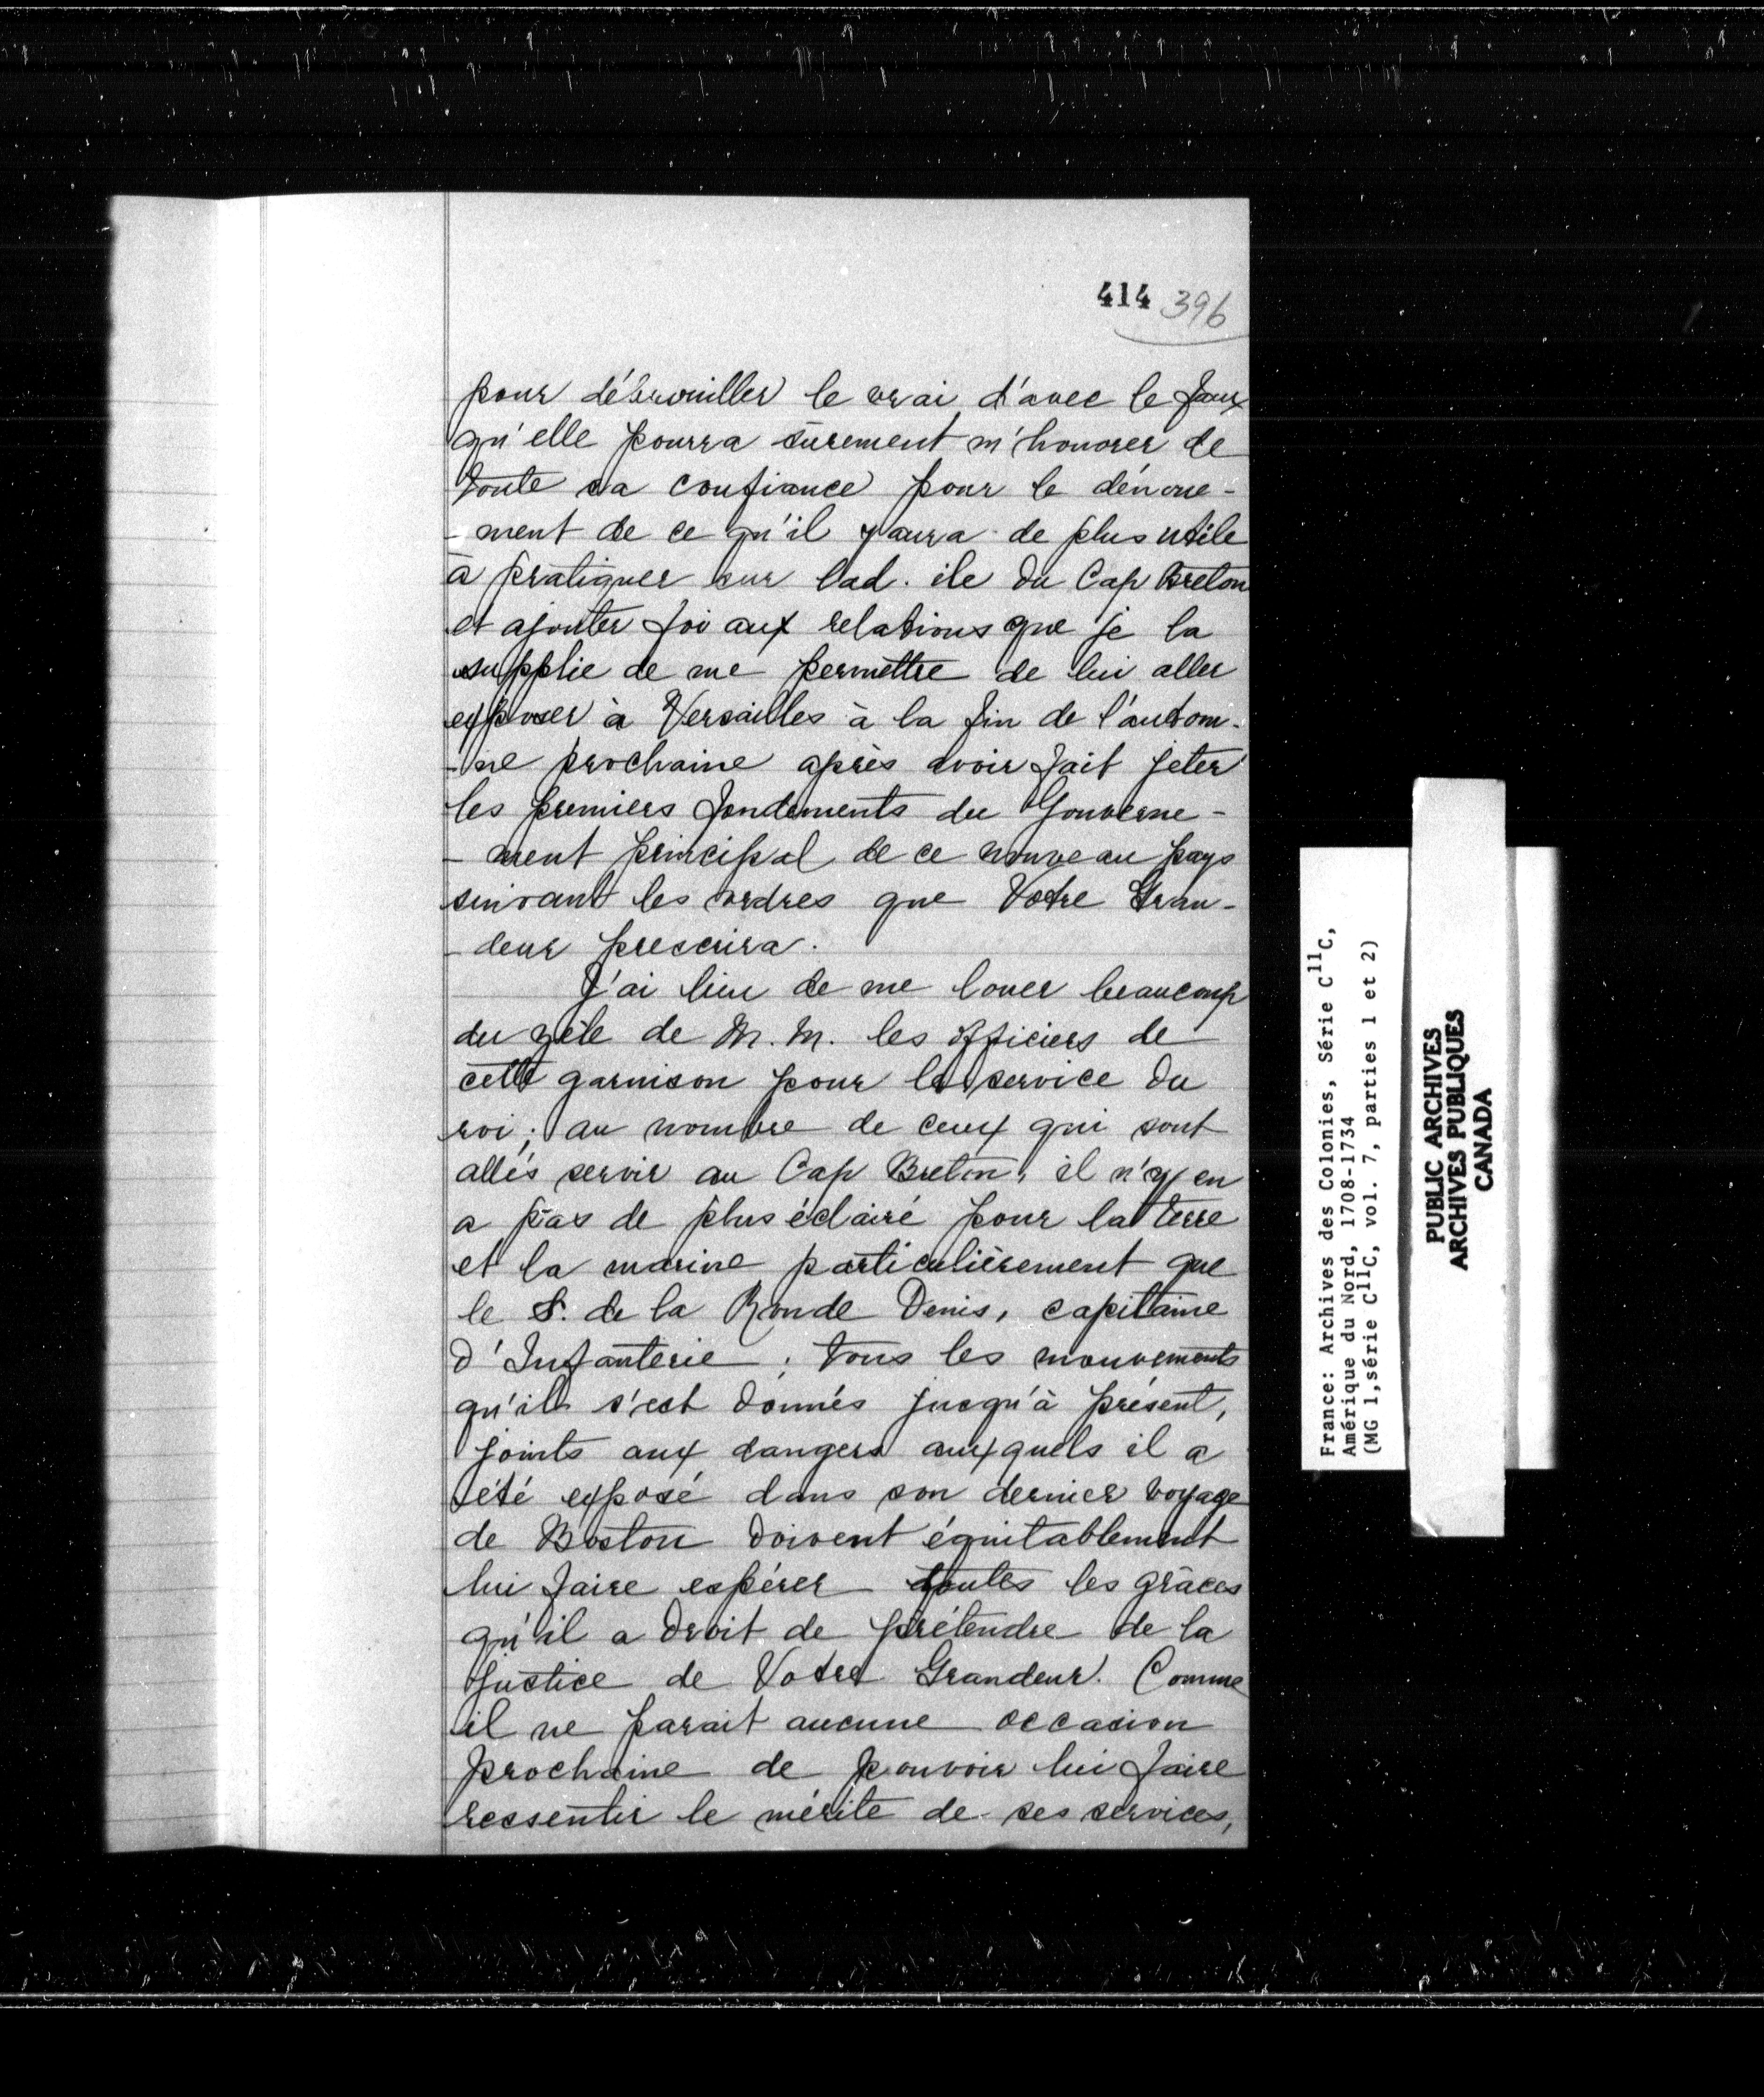 414 396
pour débrouiller le vrai d'avec le faux
qu'elle pourra sûrement m'honorer de
toute sa confiance pour le dénoue-
-ment de ce qu'il y aura de plus utile
à pratiquer sur lad. ile du Cap Breton
et ajouter foi aux relations que je la
supplie de me permettre de lui aller
exposer à Versailles à la fin de l'autom-
-ne prochaine après avoir fait jeter
les premiers fondements du Gouverne-
-ment principal de ce nouveau pays
suivant les ordres que Votre Gran-
-deur prescrira.
J'ai lieu de me louer beaucoup
du zèle de M. M. les officiers de
cette garnison pour le service du
roi; au nombre de ceux qui sont
allés servir au Cap Breton, il n'y en
a pas de plus éclairé pour la terre
et la marine particulièrement que
le S. de la Ronde Denis, capitaine
d'Infanterie; tous les mouvements
qu'il s'est donnés jusqu'à présent,
joints aux dangers auxquels il a
été exposé dans son dernier voyage
de Boston doivent équitablement
lui faire espérer toutes les grâces
qu'il a droit de prétendre de la
justice de Votre Grandeur. Comme
il ne parait aucune occasion
prochaine de pouvoir lui faire
ressentir le mérite de ses services,
France: Archives des Colonies, Série C11C,
Amérique du Nord, 1708-1734
(MG 1,série C11C, vol. 7, parties 1 et 2)
PUBLIC ARCHIVES
ARCHIVES PUBLIQUES
CANADA